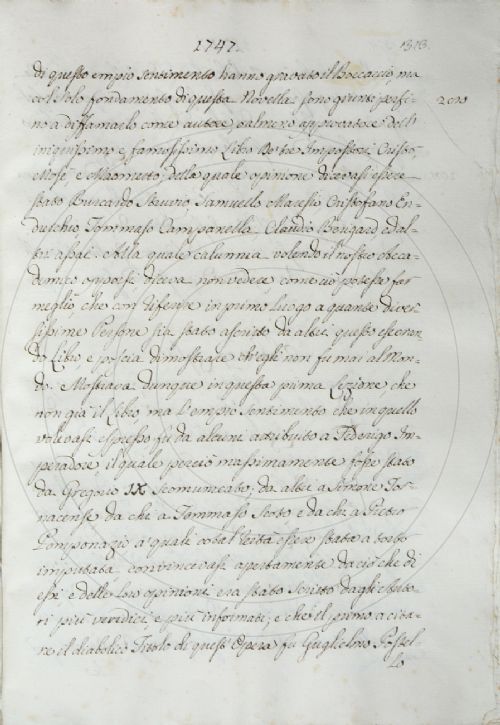 1747.
1313.
di questo empio sentimento hanno gravato il Boccaccio, ma
col solo fondamento di questa Novella sono giunti persi-
no a diffamarlo come autore, o almeno approvatore dell'
iniquissimo e famosissimo Libro De tre Impostori Cristo,
Mosè, e Maometto, della quale opinione diceasi essere
stato Burcardo Struvio, Samuello Maresio Cristofano En-
dulchio, Tommaso Campanella Claudio Berigard ed al-
tri assai. Alla quale calunnia volendo il nostro Acca-
demico opporsi diceva non vedere come ciò potesse far
meglio, che con riferire in primo luogo a quante diver
sissime Persone sia stato ascritto da altri questo esecran-
do Libro, e poscia dimostrare ch'egli non fu mai al Mon-
do. Mostrava dunque in questa prima Lezione, che
non già il Libro, ma l'empio sentimento che in quello
voleasi espresso fu da alcuni attribuito a Federigo Im-
peradore, il quale perciò massimamente fosse stato
da Gregorio IX scomunicato; da altri a Simone Tor-
nacense da chi a Tommaso Scoto, e da chi a Pietro
Pomponazio a quali cotal reità essere stata a torto
imputata, convinceasi apertamente da ciò che di
essi e delle loro opinioni era stato scritto dagli istori-
ri più veridici, e più informati; e che il primo a cita-
re il diabolico Titolo di quest'Opera fu Guglielmo Postel-
lo